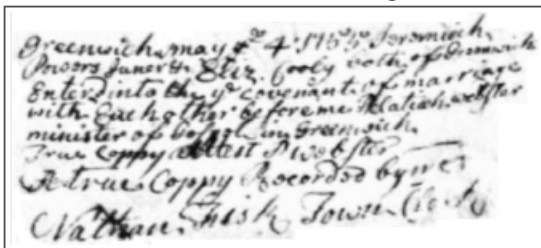 Greenwich may ye 4th 1755 Jeremiah
Powers Juner & Eliz. Cooly both of Greenwich
Enterd into the ye covenant of marriage
with Each other before me
minister of in Greenwich
True Coppy attest P Webster
A true Coppy Recorded by me
Nathan Fisk Town Clerk